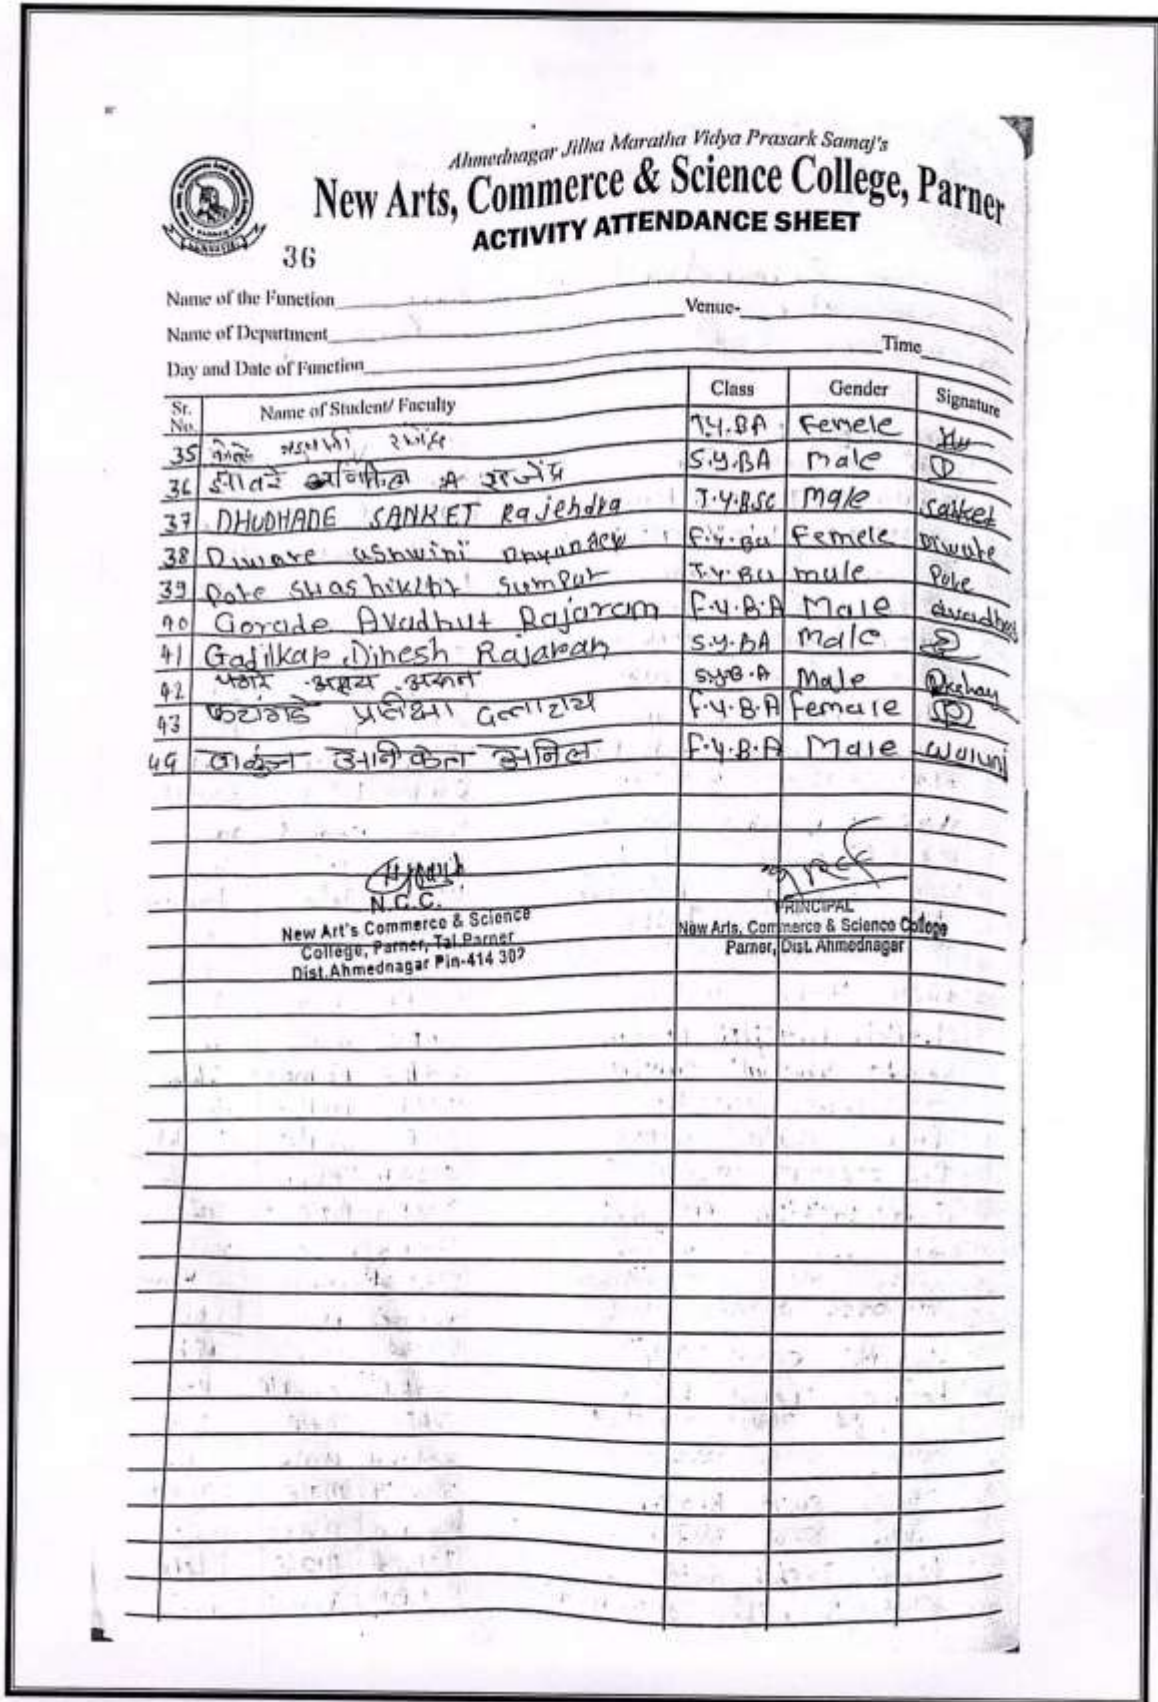 Ahmednagar Jilha Maratha Vidya Prasark Samaj's
New Arts, Commerce & Science College, Parner
ACTIVITY ATTENDANCE SHEET
36
Name of the Function
Venue-
Name of Department
Time
Day and Date of Function
Sr. No. Name of Student/ Faculty Class Gender Signature
35 T.Y.BA Femele
36 S.Y.BA male
37 DHUDHADE SANKET Rajehdra T.Y.BSC Male sanket
38 Diwate ashwini F.Y.Ba Femele Diwate
39 Pote Shashikant Sumpat T.Y.Ba mule Pote
40 Gorade Avadhut Rajaram F.Y.B.A Male Avadhut
41 Gadilkar Dinesh Rajaram S.Y.BA Male
42 पठारे अक्षय अरुन S.Y.B.A Male Akshay
43 प्रतीक्षा दत्तात्रय F.Y.B.A Female
44 वाळुंज अनिकेत अनिल F.Y.B.A Male Walunj
N.C.C.
New Art's Commerce & Science
College, Parner, Tal.Parner
Dist.Ahmednagar Pin-414 302
PRINCIPAL
New Arts, Commerce & Science College
Parner, Dist. Ahmednagar